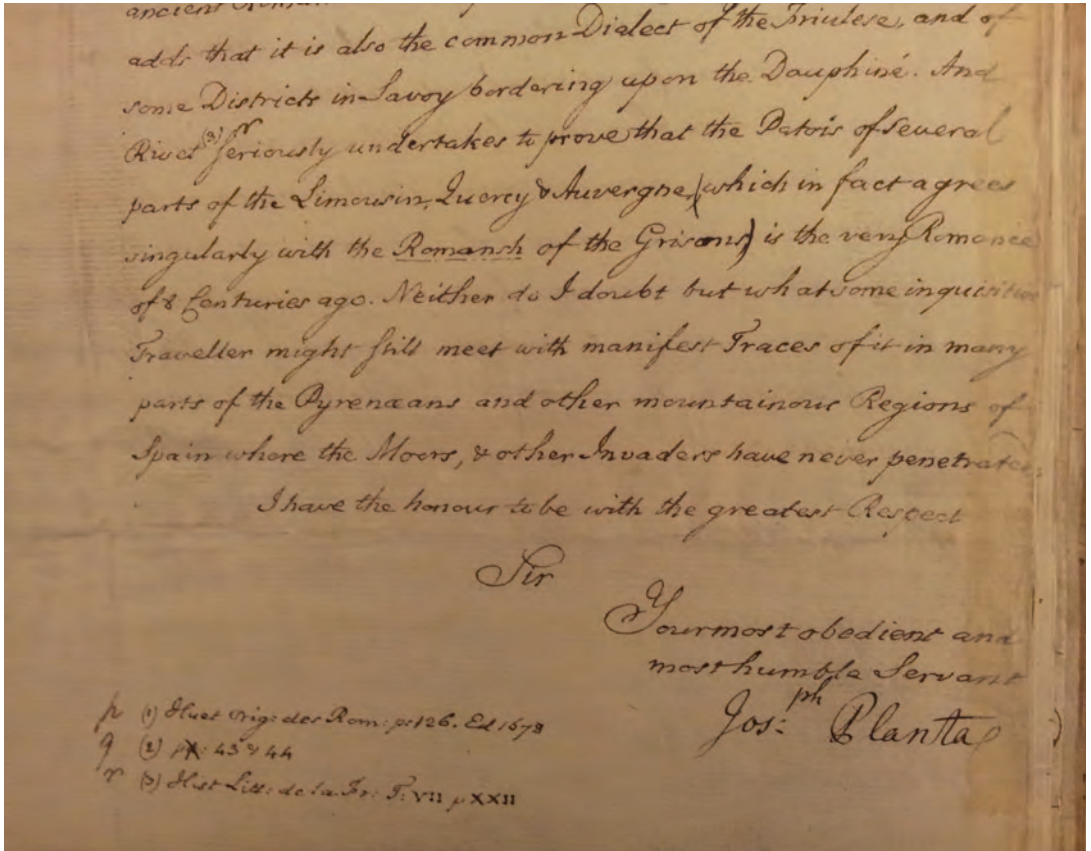 ancient Roman
adds that it is also the common Dialect of the Friulese, and of
some Districts in Savoy bordering upon the Dauphiné. And
Rivet (3) r seriously undertakes to prove that the Patois of several
parts of the Limousin, Quercy & Auvergne, (which in fact agrees
singularly with the Romansh of the Grisons) is the very Romance
of 8 Centuries ago. Neither do I doubt but what some inquisitive
Traveller might still meet with manifest Traces of it in many
parts of the Pyrenæans and other mountainous Regions of
Spain where the Moors, & other Invaders have never penetrated.
I have the honour to be with the greatest Respect
Sir
Your most obedient and
most humble Servant
Jos:ph Planta
p (1) Huet Orig: des Rom: p: 126. Ed 1678
q (2) p: 43 & 44
r (3) Hist Litt: de la Fr: T: VII p XXII